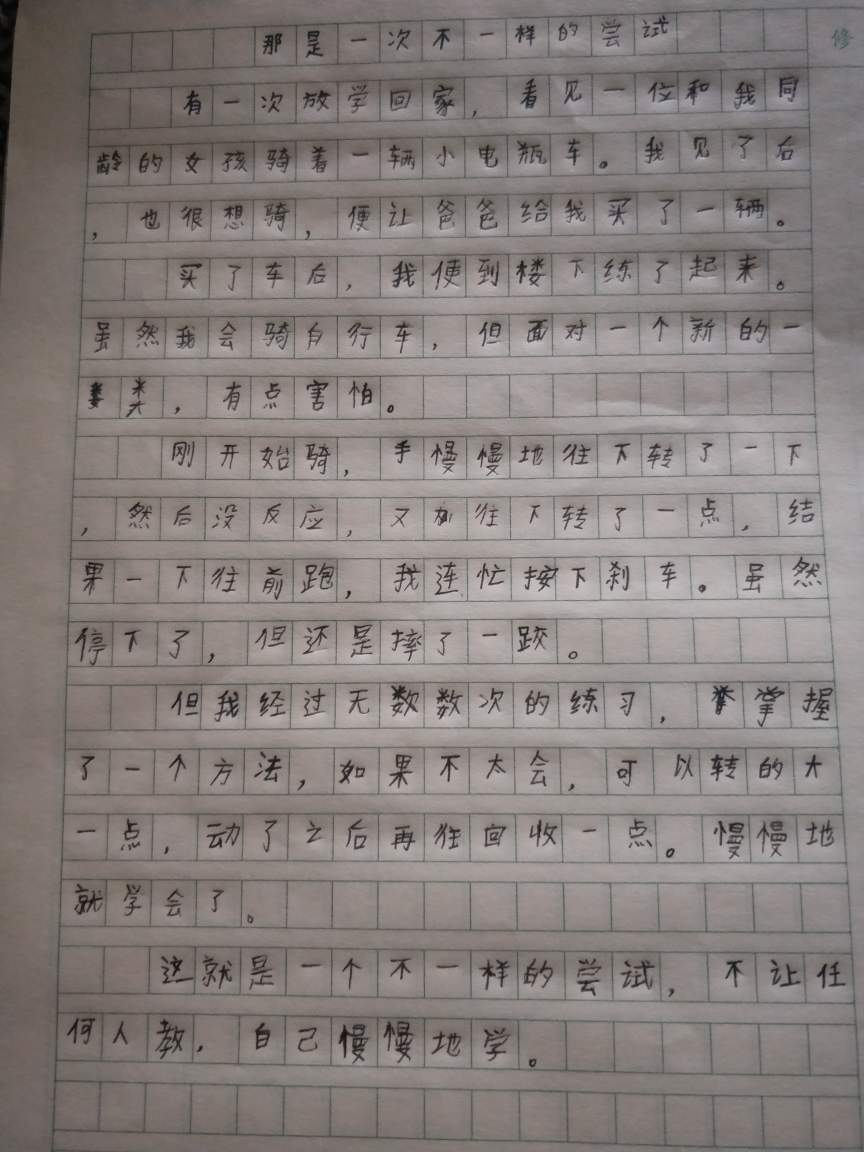 修
那是一次不一样的尝试
有一次放学回家，看见一位和我同
龄的女孩骑着一辆小电瓶车。我见了后
，也很想骑，便让爸爸给我买了一辆。
买了车后，我便到楼下练了起来。
虽然我会骑自行车，但面对一个新的一
类，有点害怕。
刚开始骑，手慢慢地往下转了一下
，然后没反应，又往下转了一点，结
果一下往前跑，我连忙按下刹车。虽然
停下了，但还是摔了一跤。
但我经过无数数次的练习，掌握
了一个方法，如果不太会，可以转的大
一点，动了之后再往回收一点。慢慢地
就学会了。
这就是一个不一样的尝试，不让任
何人教，自己慢慢地学。